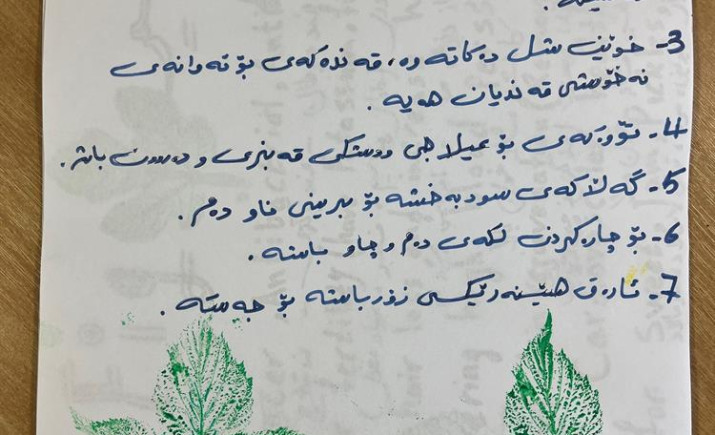 3- خوێن شل دەکاتەوە، قەندەکەی بۆ ئەوانەی
نەخۆشی قەندیان هەیە.
4- تۆوەکەی بۆ عیلاجی ووشکی قەبزی و دەروون باشە.
5- گەڵاکەی سودبەخشە بۆ برینی ناو دەم.
6- بۆ چارەکردن لکەی دەم و چاو باشە.
7- ئارەق هێنەرێکی زۆر باشە بۆ جەستە.